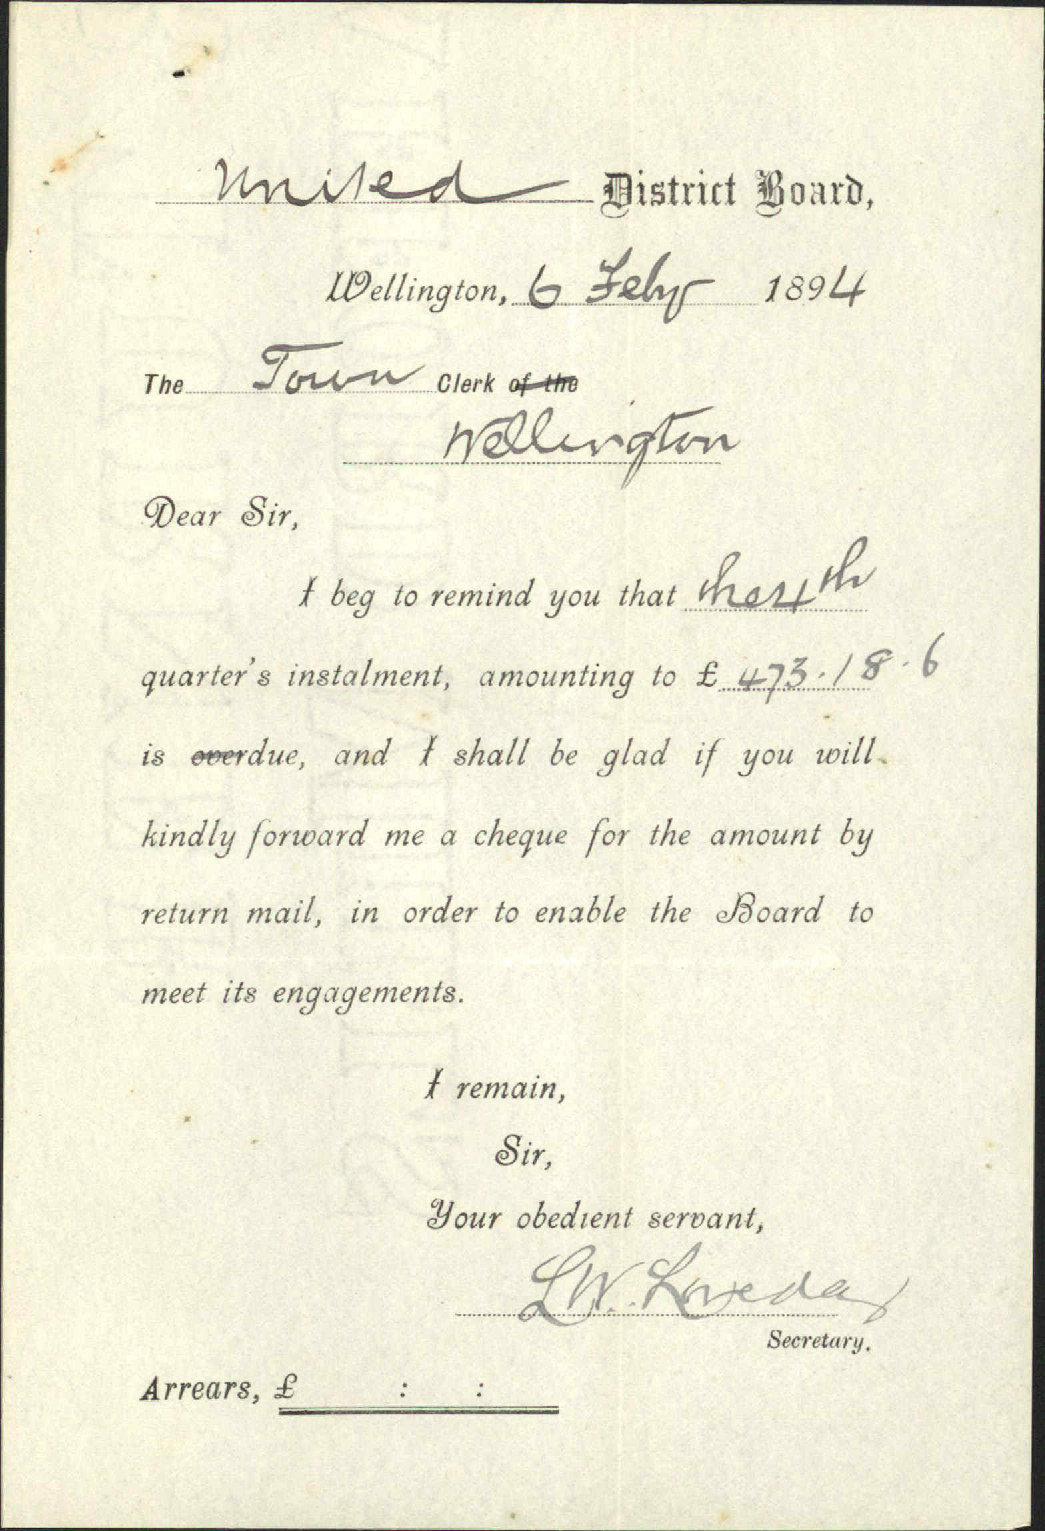 United District Board,
Wellington, 6 Feby 1894
The Town Clerk of the
Wellington
Dear Sir,
I beg to remind you that the 4th
quarter's instalment, amounting to £ 473.18.6
is overdue, and I shall be glad if you will
kindly forward me a cheque for the amount by
return mail, in order to enable the Board to
meet its engagements.
I remain,
Sir,
Your obedient servant,
L.W. Loveday
Secretary.
Arrears, £ : :